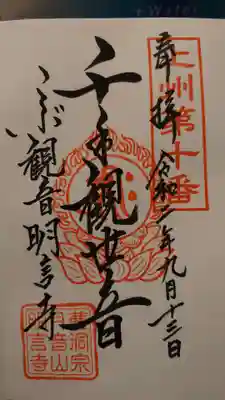 上州第十番
奉拝 令和二年九月十三日
千手観世音
こぶ観音明言寺
曹洞宗
観音山
明言寺